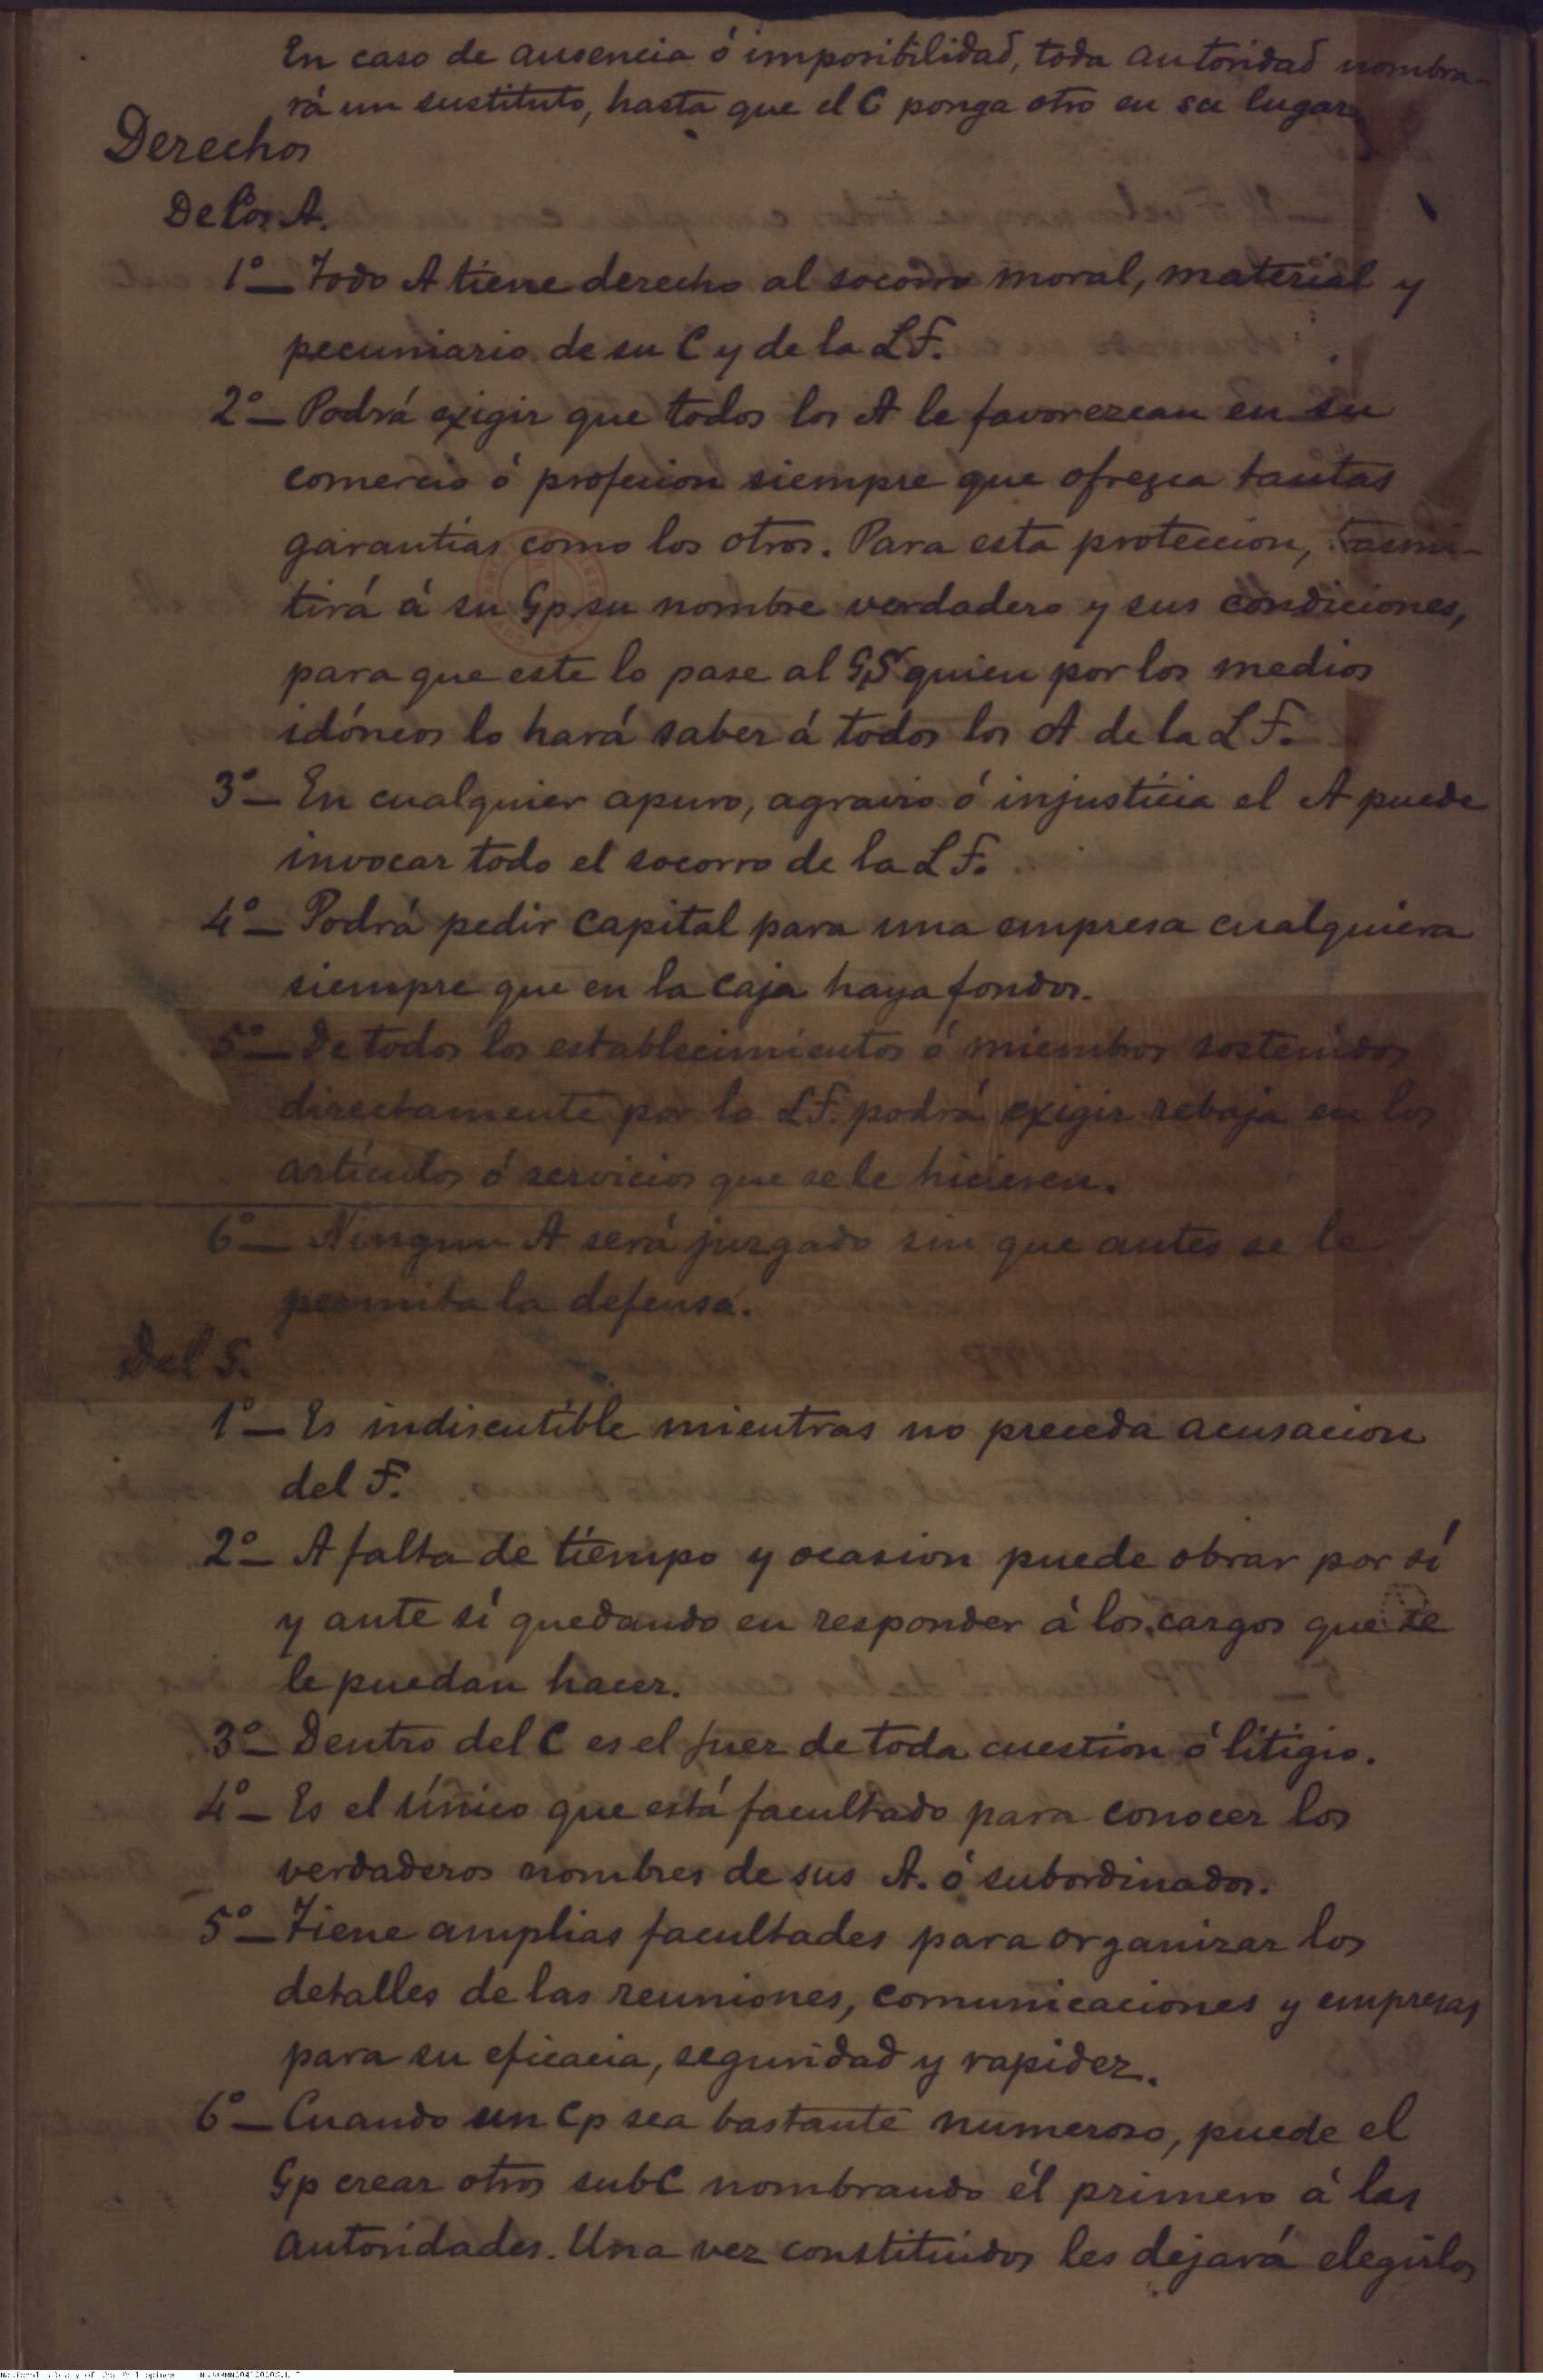 En caso de ausencia ó imposibilidad, toda autoridad nombra-
rá un sustituto, hasta que el C ponga otro en su lugar.
Derechos
De los A.
1º— Todo A tiene derecho al socorro moral, material y
pecuniario de su C y de la L F.
2º— Podrá exigir que todos los A le favorezcan en su
comercio ó profesion siempre que ofrezca tantas
garantías como los otros. Para esta proteccion, trasmi-
tirá á su Gp su nombre verdadero y sus condiciones,
para que este lo pase al GS quien por los medios
idóneos lo hará saber á todos los A de la L F.
3º— En cualquier apuro, agravio ó injusticia el A puede
invocar todo el socorro de la L F.
4º— Podrá pedir capital para una empresa cualquiera
siempre que en la caja haya fondos.
5º— De todos los establecimientos ó miembros sostenidos
directamente por la L F. podrá exigir rebaja en los
artículos ó servicios que se le hicieren.
6º— Ningun A será juzgado sin que antes se le
permita la defensa.
Del G.
1º— Es indiscutible mientras no preceda acusacion
del F.
2º— A falta de tiempo y ocasion puede obrar por sí
y ante sí quedando en responder á los cargos que se
le puedan hacer.
3º— Dentro del C es el juez de toda cuestion ó litigio.
4º— Es el único que está facultado para conocer los
verdaderos nombres de sus A. ó subordinados.
5º— Tiene amplias facultades para organizar los
detalles de las reuniones, comunicaciones y empresas
para su eficacia, seguridad y rapidez.
6º— Cuando un Cp sea bastante numeroso, puede el
Gp crear otros subC nombrando él primero á las
autoridades. Una vez constituidos les dejará elegirlos